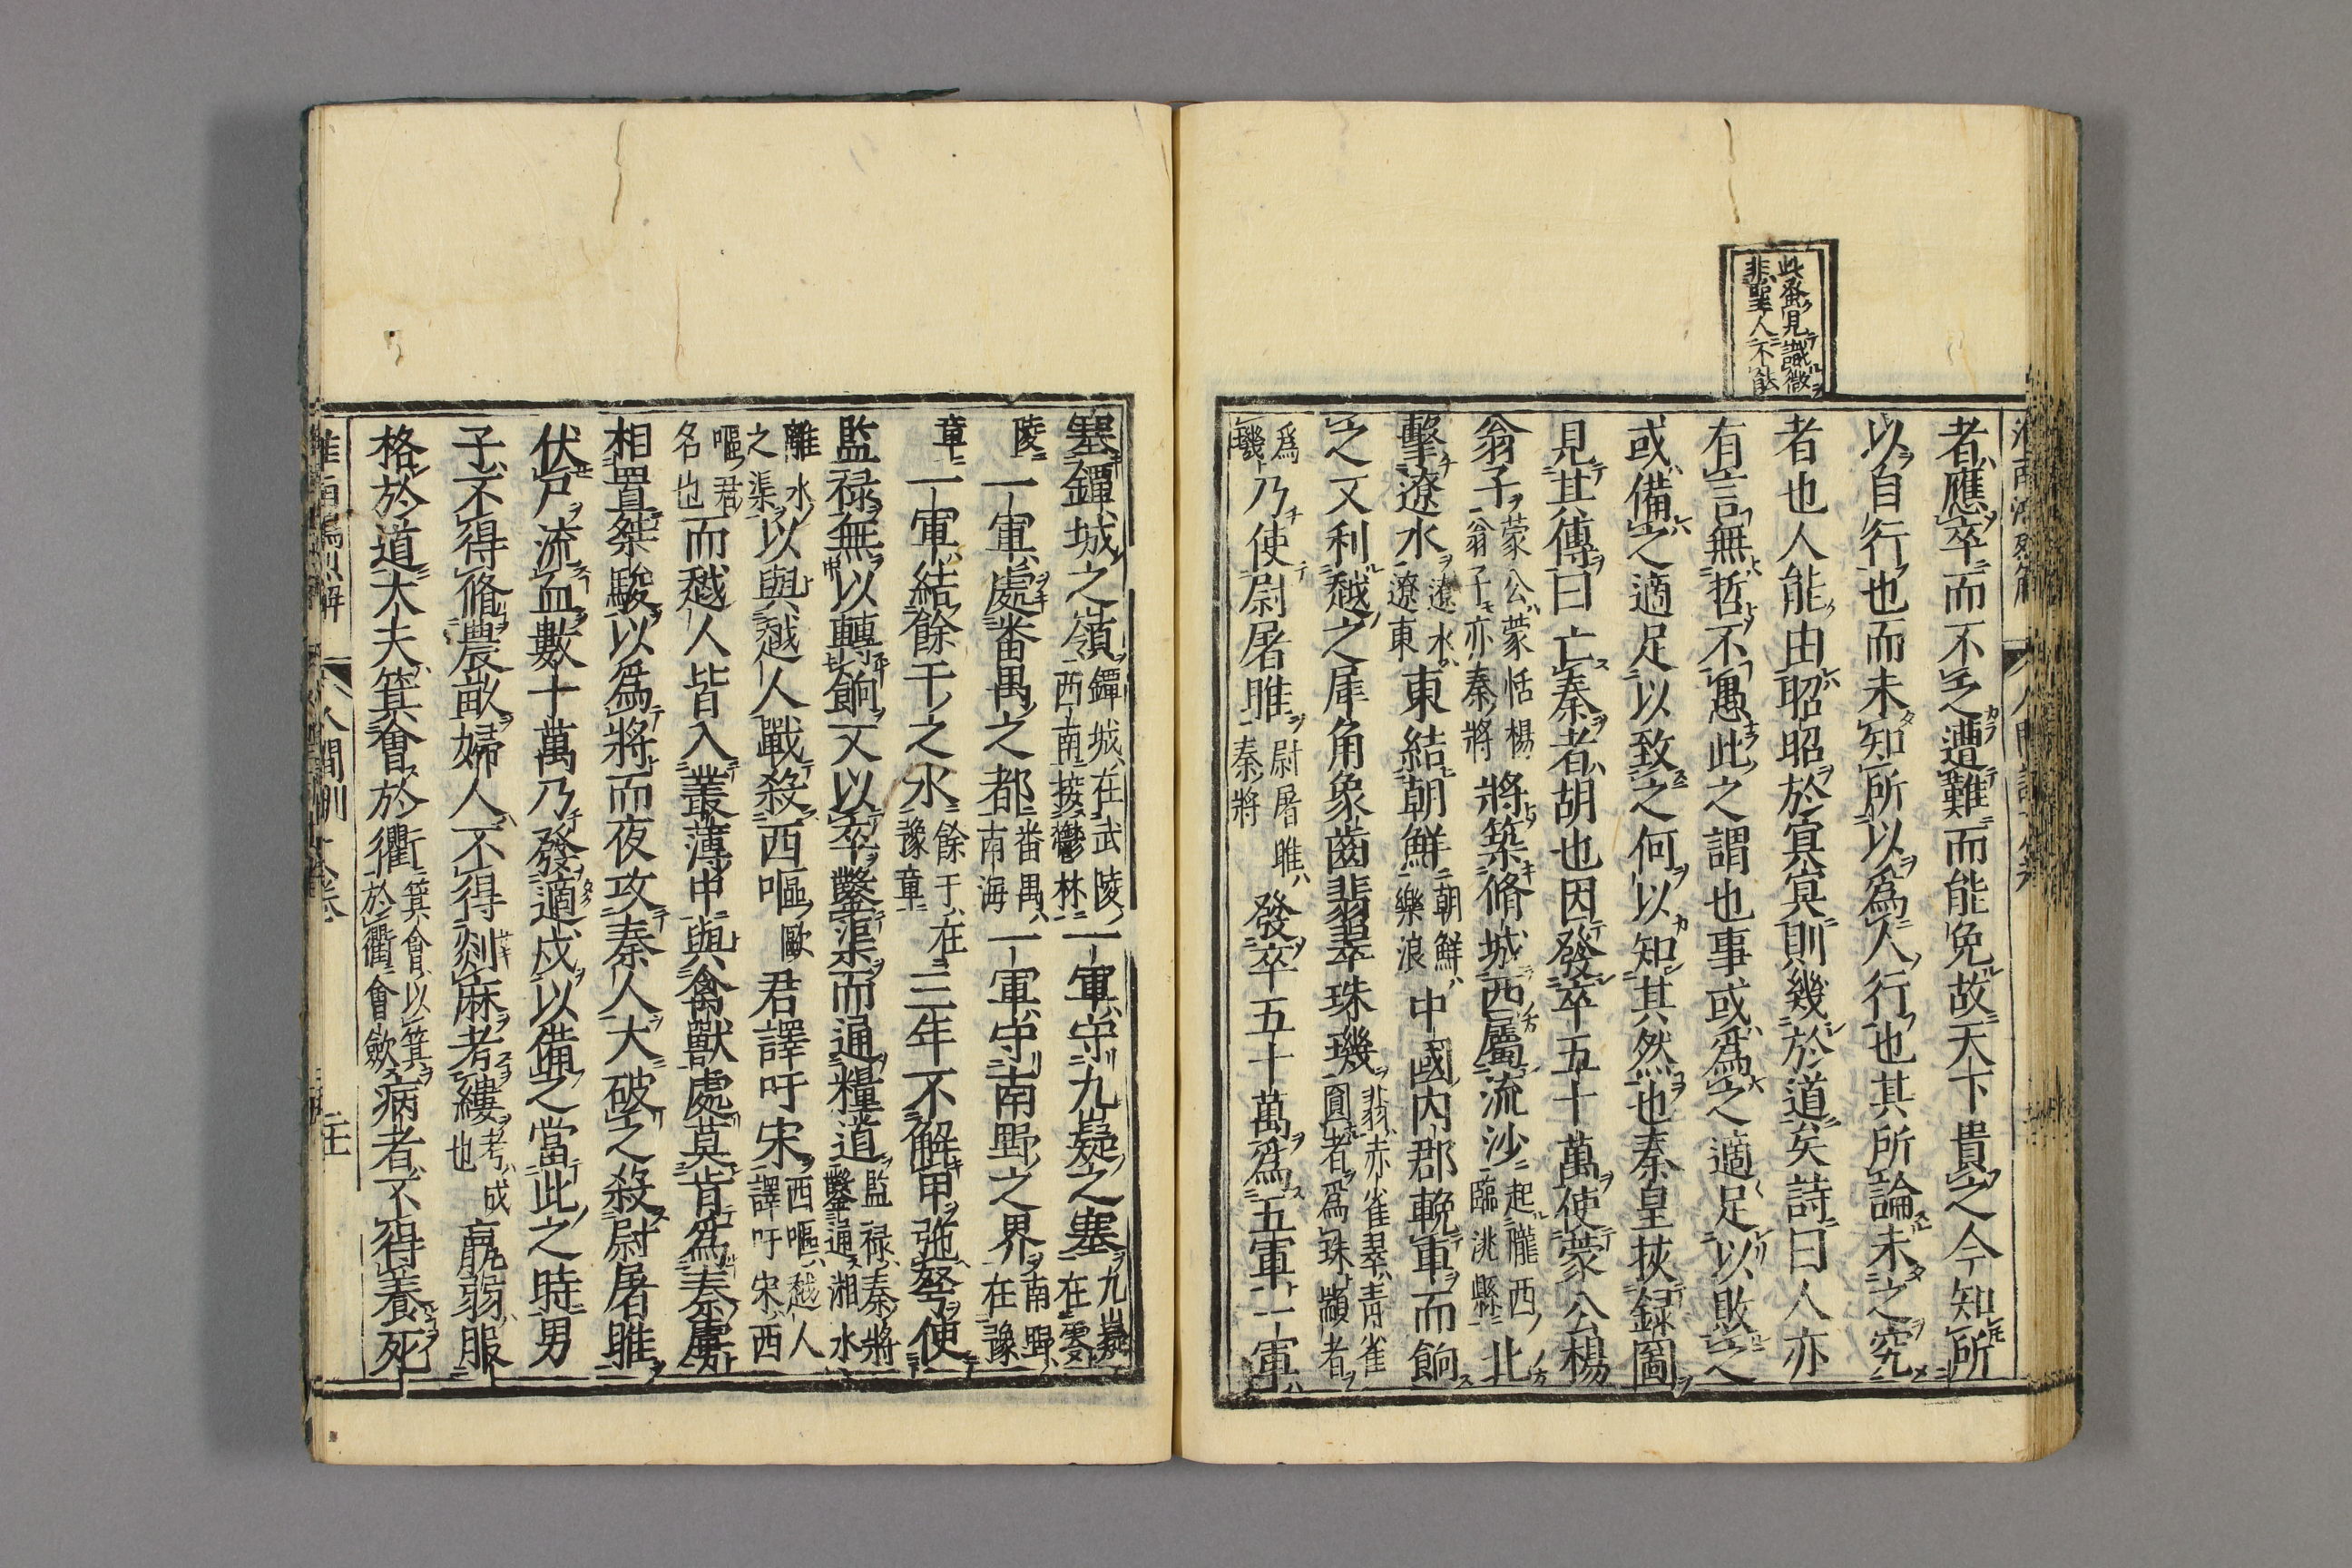 此蚤見識微
非聖人不能
者應卒而不乏遭難而能免故天下貴之今知所
以自行也而未知所以爲人行也其所論未之究
者也人能由昭昭於冥冥則幾於道矣詩曰人亦
有言無哲不愚此之謂也事或爲之適足以敗之
或備之適足以致之何以知其然也秦皇挾録圖
見其傳曰亡秦者胡也因發卒五十萬使蒙公楊
翁子蒙公蒙恬楊翁子亦秦將將築脩城西屬流沙起隴西臨洮縣北
擊遼水遼水遼東東結朝鮮朝鮮樂浪中國内郡輓車而餉
之又利越之犀角象齒翡翠珠璣翡赤雀翠青雀圓者爲珠纇者
爲璣乃使尉屠睢尉屠睢秦將發卒五十萬爲五軍一軍
塞鐔城之嶺鐔城在武陵西南接鬱林一軍守九嶷之塞九嶷在零
陵一軍處番禺之都番禺南海一軍守南野之界南野在豫
章一軍結餘干之水餘干在豫章三年不解甲弛弩使
監禄無以轉餉又以卒鑿渠而通糧道監禄秦將鑿通湘水
離水之渠以與越人戰殺西嘔君譯吁宋西嘔越人譯吁宋西
嘔君名也而越人皆入叢薄中與禽獸處莫肯爲秦虜
相置桀駿以爲將而夜攻秦人大破之殺尉屠睢
伏尸流血數十萬乃發適戍以備之當此之時男
子不得脩農畝婦人不得剡麻考縷考成也羸弱服
格於道大夫箕會於衢箕會以箕於衢會斂病者不得養死
人間訓